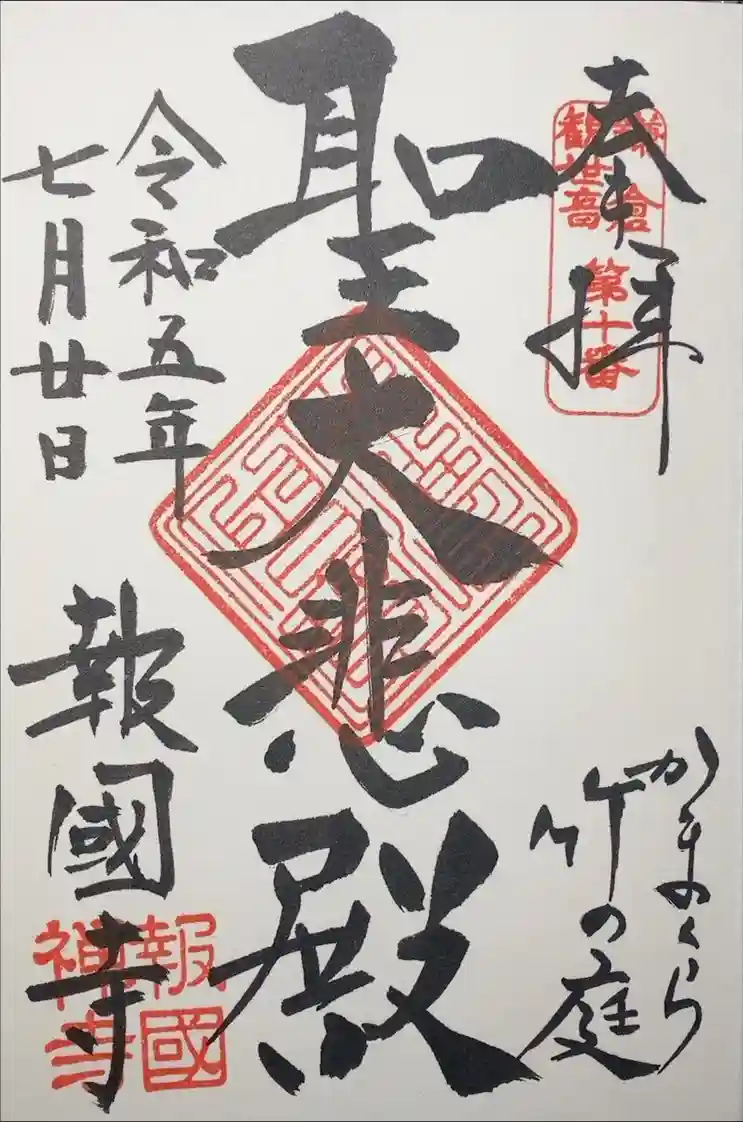 奉拝
鎌倉
観世音 第十番
かまくら
竹の庭
聖大悲殿
令和五年
七月廿日
報國寺
報國
禅寺